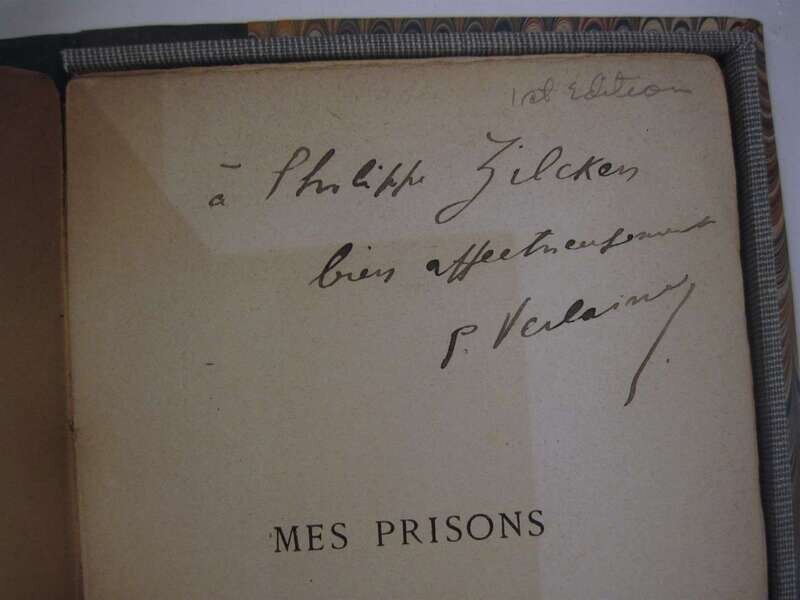 1st Edition
à Philippe Zilcken
bien affectueusement
P. Verlaine
MES PRISONS